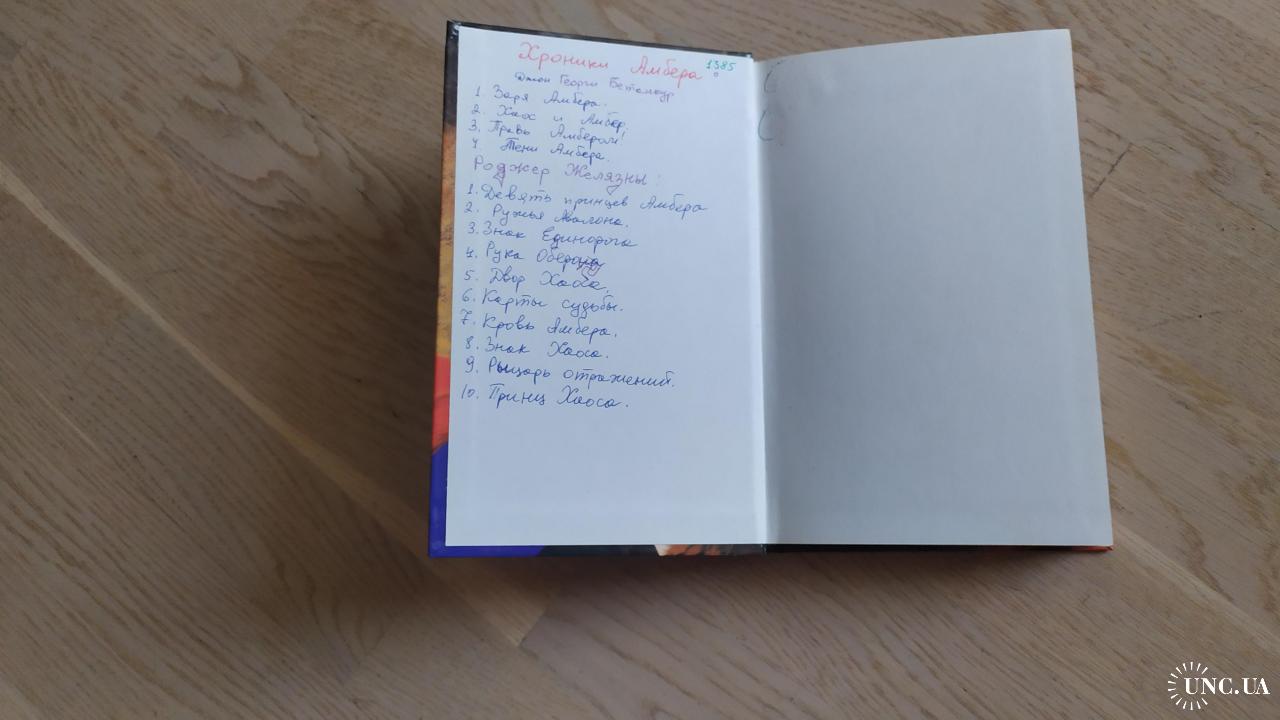 Хроники Амбера
1385
Джон Грегори Бетанкур
1. Заря Амбера.
2. Хаос и Амбер.
3. Правь Амбером!
4. Тени Амбера.
Роджер Желязны:
1. Девять принцев Амбера
2. Ружья Авалона.
3. Знак Единорога
4. Рука Оберона
5. Двор Хаоса.
6. Карты судьбы.
7. Кровь Амбера.
8. Знак Хаоса.
9. Рыцарь отражений.
10. Принц Хаоса.
UNC.UA